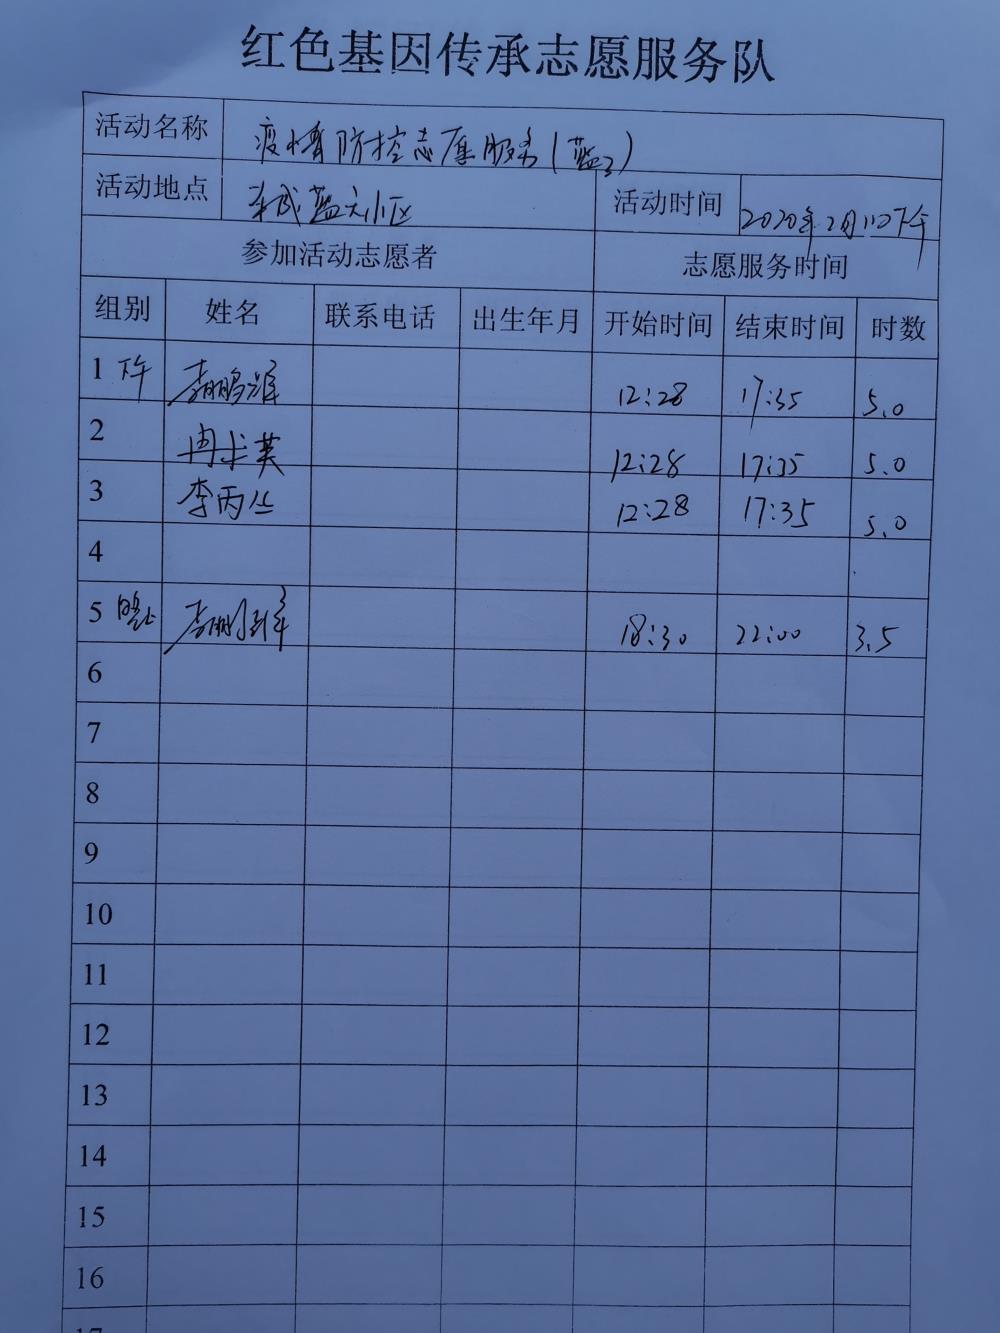 红色基因传承志愿服务队
活动名称 疫情防控志愿服务(蓝3)
活动地点 蓝天小区 活动时间 2020年2月11日下午
参加活动志愿者 志愿服务时间
组别 姓名 联系电话 出生年月 开始时间 结束时间 时数
1 下午 李鹏 12:28 17:35 5.0
2 冉 英 12:28 17:35 5.0
3 李丙丛 12:28 17:35 5.0
4
5 晚上 李鹏 18:30 22:00 3.5
6
7
8
9
10
11
12
13
14
15
16
17